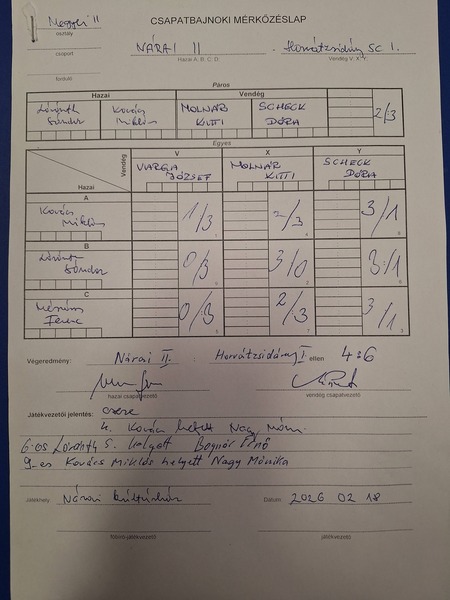 Megyei II
osztály
CSAPATBAJNOKI MÉRKŐZÉSLAP
csoport
NÁRAI II - Horvátzsidány SC I.
Hazai A, B, C, D Vendég V, X, Y
forduló
Páros
Hazai Vendég
Lóránth Sándor Kovács Miklós MOLNÁR KITTI SCHECK DÓRA 2/3
Egyes
Vendég
Hazai
V X Y
VARGA JÓZSEF MOLNÁR KITTI SCHECK DÓRA
A
Kovács Miklós 1/3 2/3 3/1
B
Lóránth Sándor 0/3 3/0 3/1
C
Ferenc 0/3 2/3 3/1
Végeredmény: Nárai II. Horvátzsidány I ellen 4:6
hazai csapatvezető vendég csapatvezető
Játékvezetői jelentés: csere
4. Kovács helyett Nagy Móni
6-os Lóránth S. helyett Bognár Ernő
9-es Kovács Miklós helyett Nagy Mónika
Játékhely Nárai kultúrház Dátum 2026 02 18
játékvezető